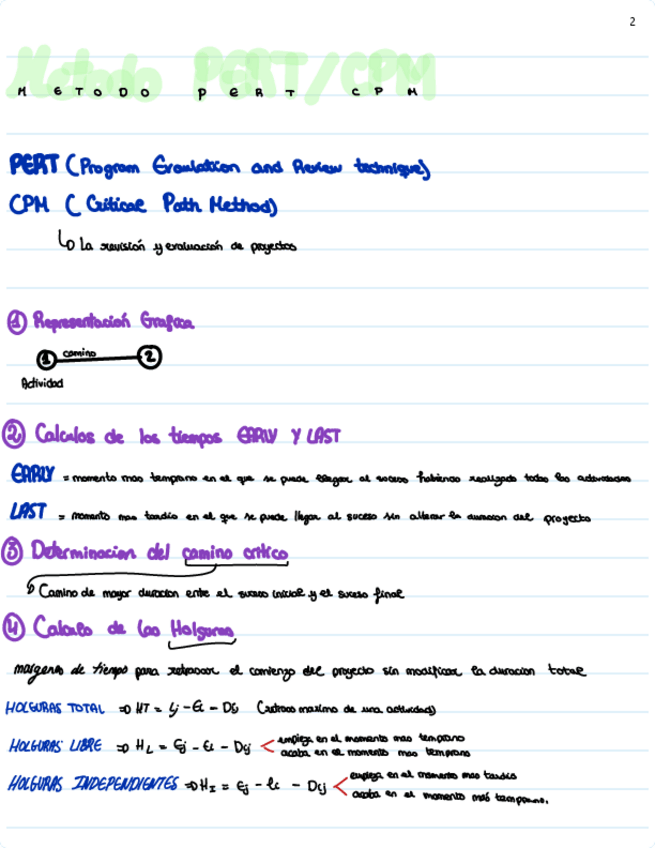 2
Metodo PERT/CPM
METODO PERT CPM
PERT (Program Evaulation and Review technique)
CPM (Critical Path Method)
↳ La revisión y evaluación de proyectos
① Representación Grafica
① camino ②
Actividad
② Calculos de los tiempos EARLY Y LAST
EARLY = momento mas temprano en el que se puede llegar al suceso habiendo realizado todas las actividades
LAST = momento mas tardio en el que se puede llegar al suceso sin alterar la duracion del proyecto
③ Determinacion del camino critico
↳ Camino de mayor duracion ente el suceso inicial y el suceso final
④ Calculo de las Holguras
margenes de tiempo para retrasar el comienzo del proyecto sin modificar la duracion total
HOLGURAS TOTAL ⇒ HT = Lj - Ei - Dij (retraso maximo de una actividad)
HOLGURAS LIBRE ⇒ HL = Ej - Ei - Dij < empieza en el momento mas temprano
acaba en el momento mas temprano
HOLGURAS INDEPENDIENTES ⇒ HI = Ej - Li - Dij < empieza en el momento mas tardio
acaba en el momento más temprano.